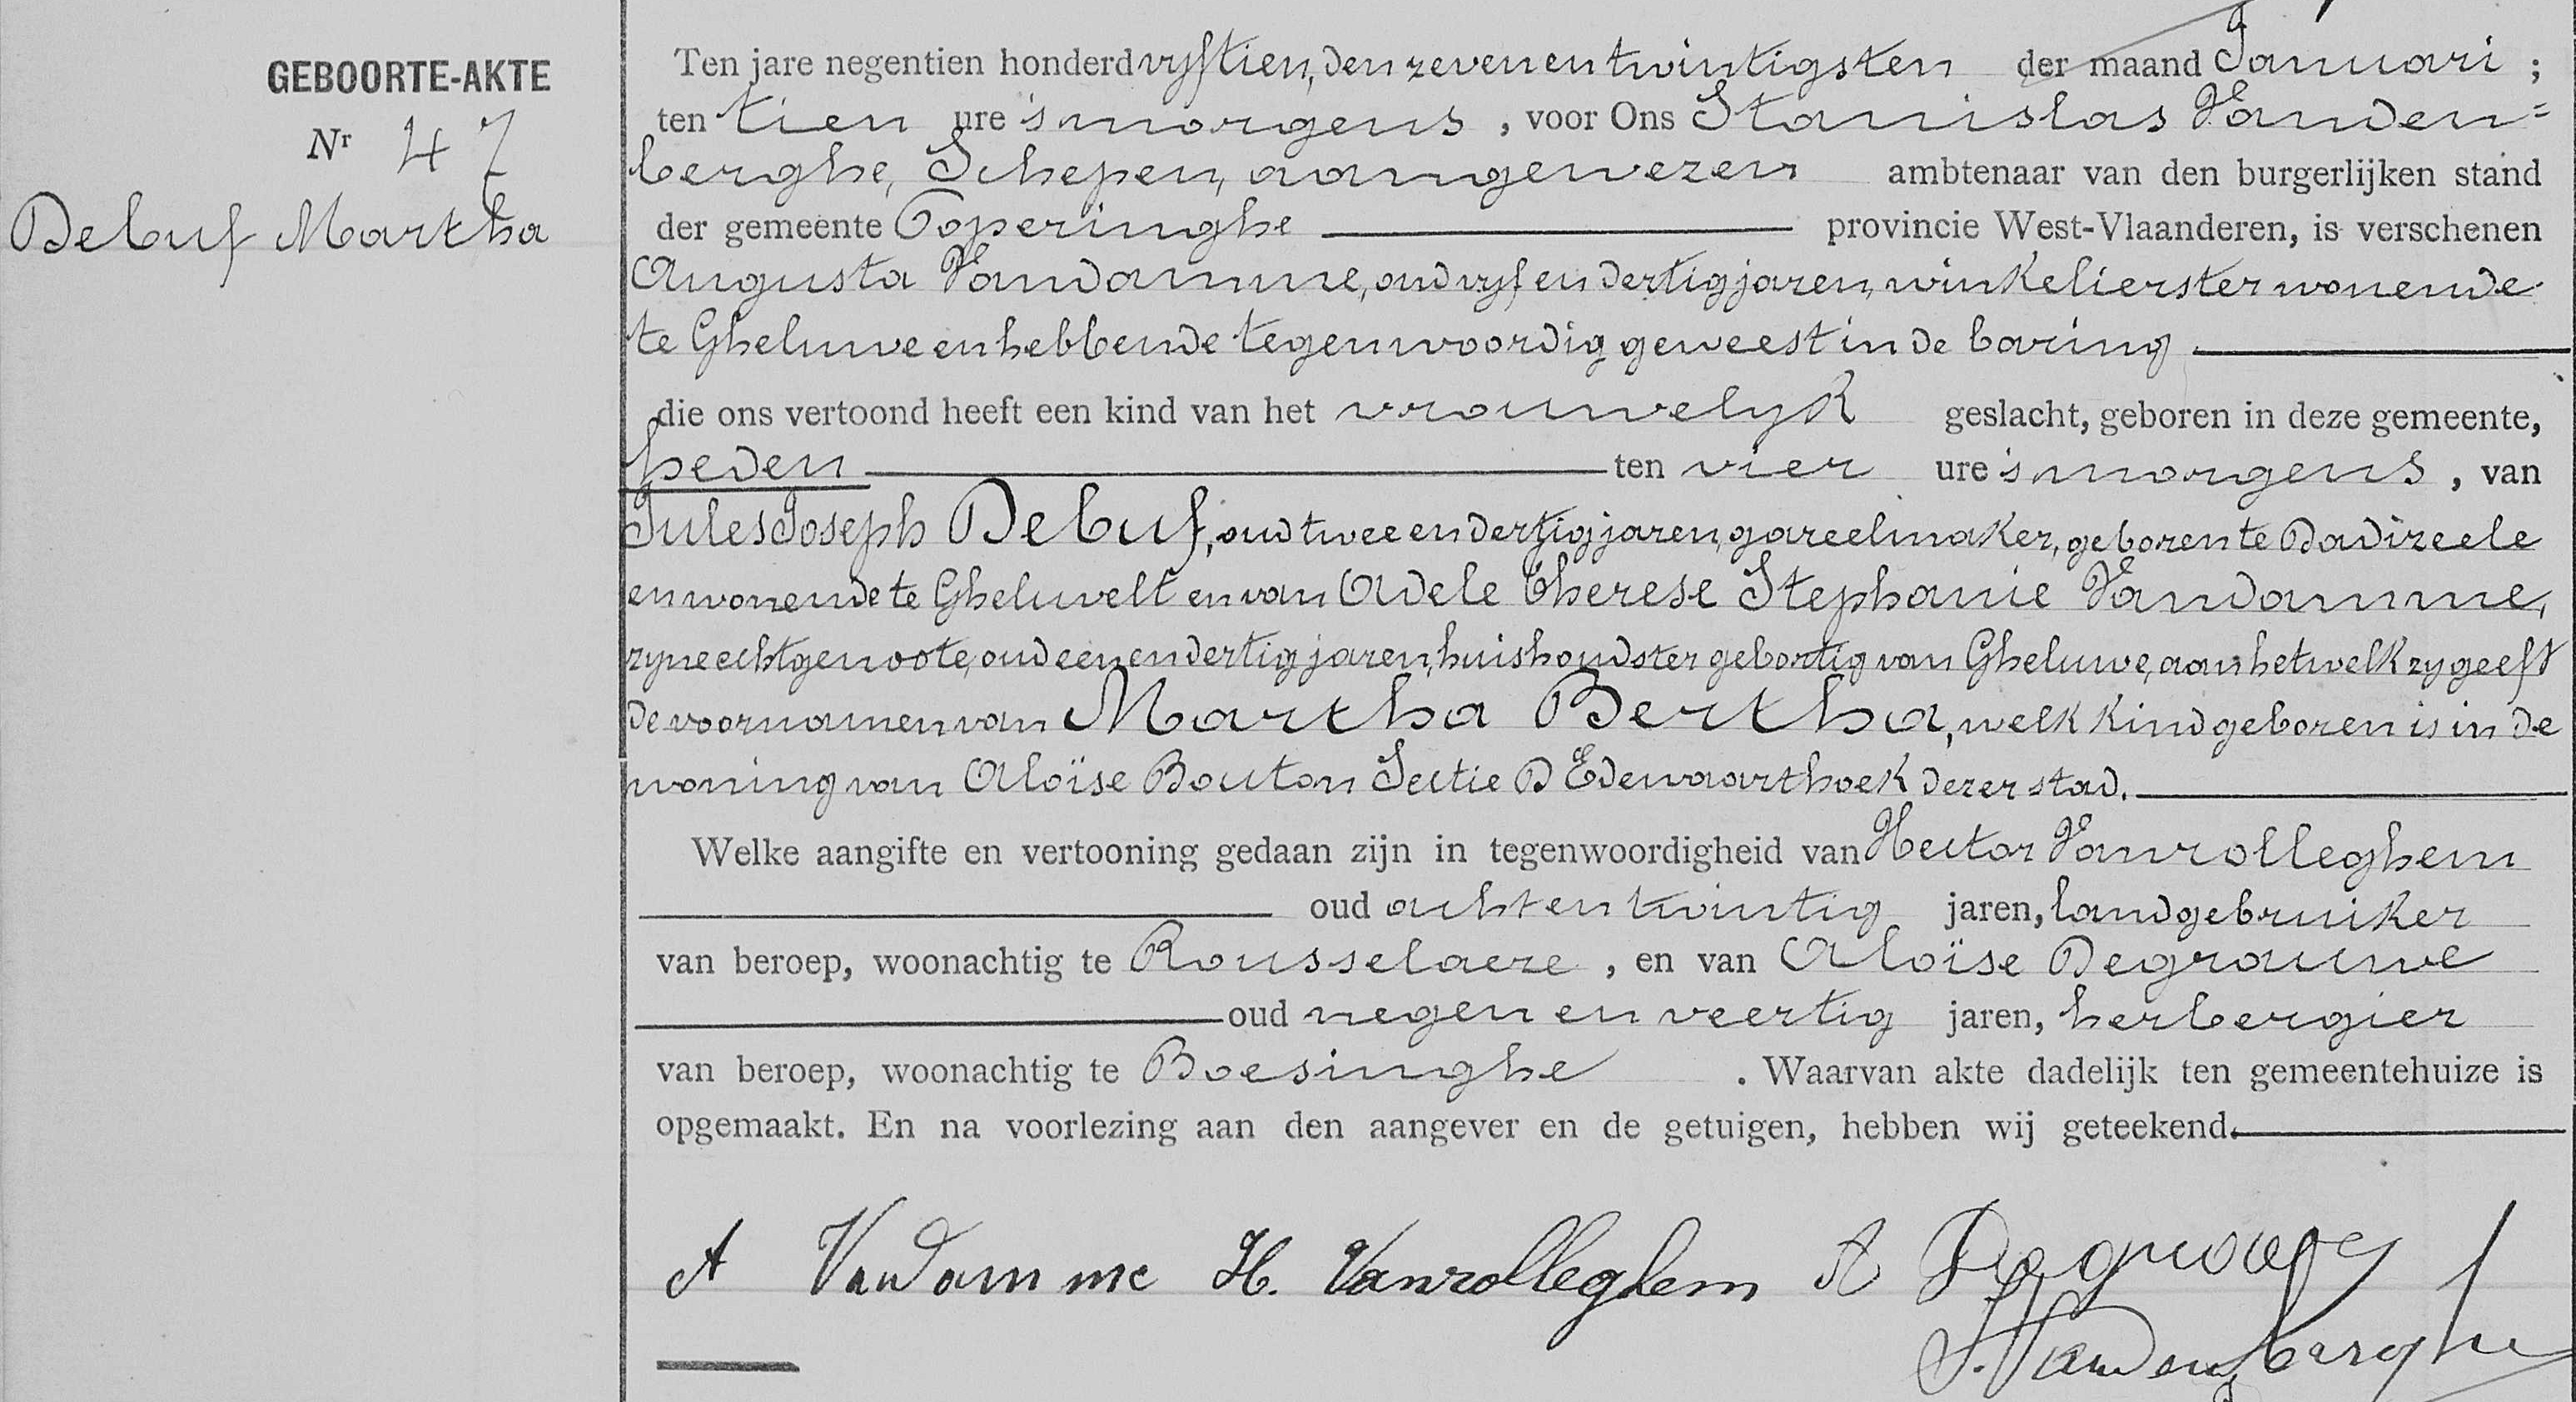 GEBOORTE-AKTE
Nr 47
Debuf Martha
Ten jare negentien honderd vyftien, den zeven en twintigsten der maand Januari ;
ten tien ure 's morgens , voor Ons Stanislas Vanden=
berghe, Schepen, aangewezen ambtenaar van den burgerlijken stand
der gemeente Poperinghe provincie West-Vlaanderen, is verschenen
Augusta Vandamme, oud vyf en dertig jaren, winkelierster wonende
te Gheluwe en hebbende tegenwoordig geweest in de baring
die ons vertoond heeft een kind van het vrouwelyk geslacht, geboren in deze gemeente,
heden ten vier ure 's morgens , van
Jules Joseph Debuf, oud twee en dertig jaren, gareelmaker, geboren te Dadizeele
en wonende te Gheluvelt en van Adele Therese Stephanie Vandamme,
zyne echtgenoote, oud een en dertig jaren, huishoudster gebortig van Gheluwe, aan hetwelk zy geeft
de voornamen van Martha Bertha, welk kind geboren is in de
woning van Aloïse Bouton Sectie D Edewaarthoek dezer stad.
Welke aangifte en vertooning gedaan zijn in tegenwoordigheid van Hector Vanrolleghem
oud acht en twintig jaren, landgebruiker
van beroep, woonachtig te Rousselaere , en van Aloïse Degrauwe
oud negen en veertig jaren, herbergier
van beroep, woonachtig te Boesinghe . Waarvan akte dadelijk ten gemeentehuize is
opgemaakt. En na voorlezing aan den aangever en de getuigen, hebben wij geteekend.
A Vandamme H. Vanrolleghem A Degrauwe
S. Vandenberghe